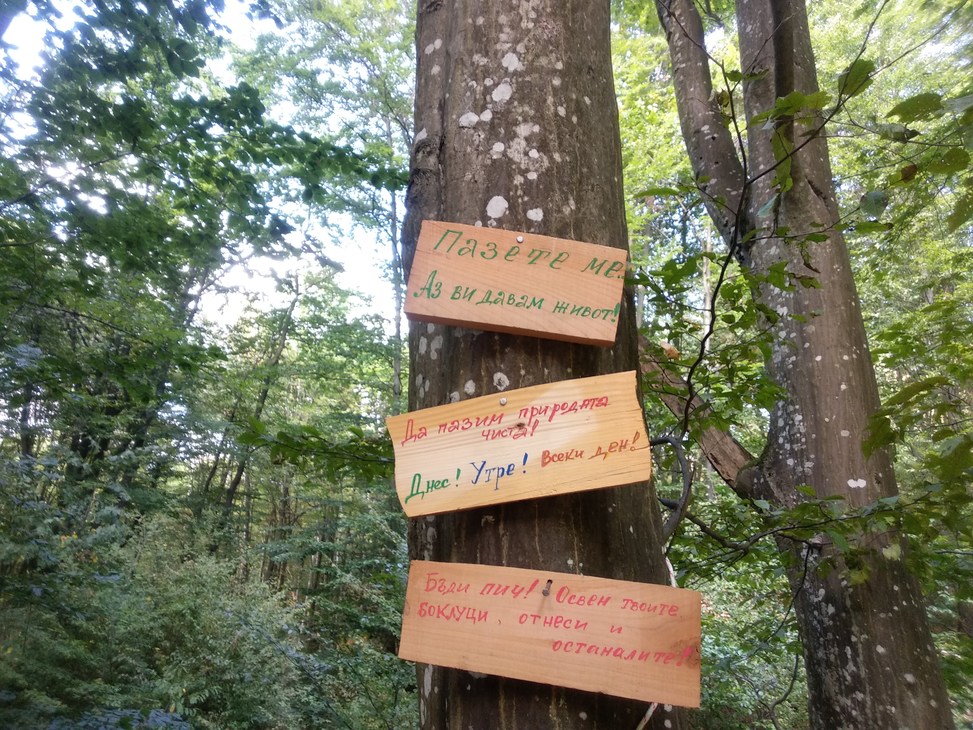 Пазете ме.
Аз ви давам живот!
Да пазим природата
чиста!
Днес! Утре! Всеки ден!
Бъди пич! Освен твоите
боклуци, отнеси и
останалите!